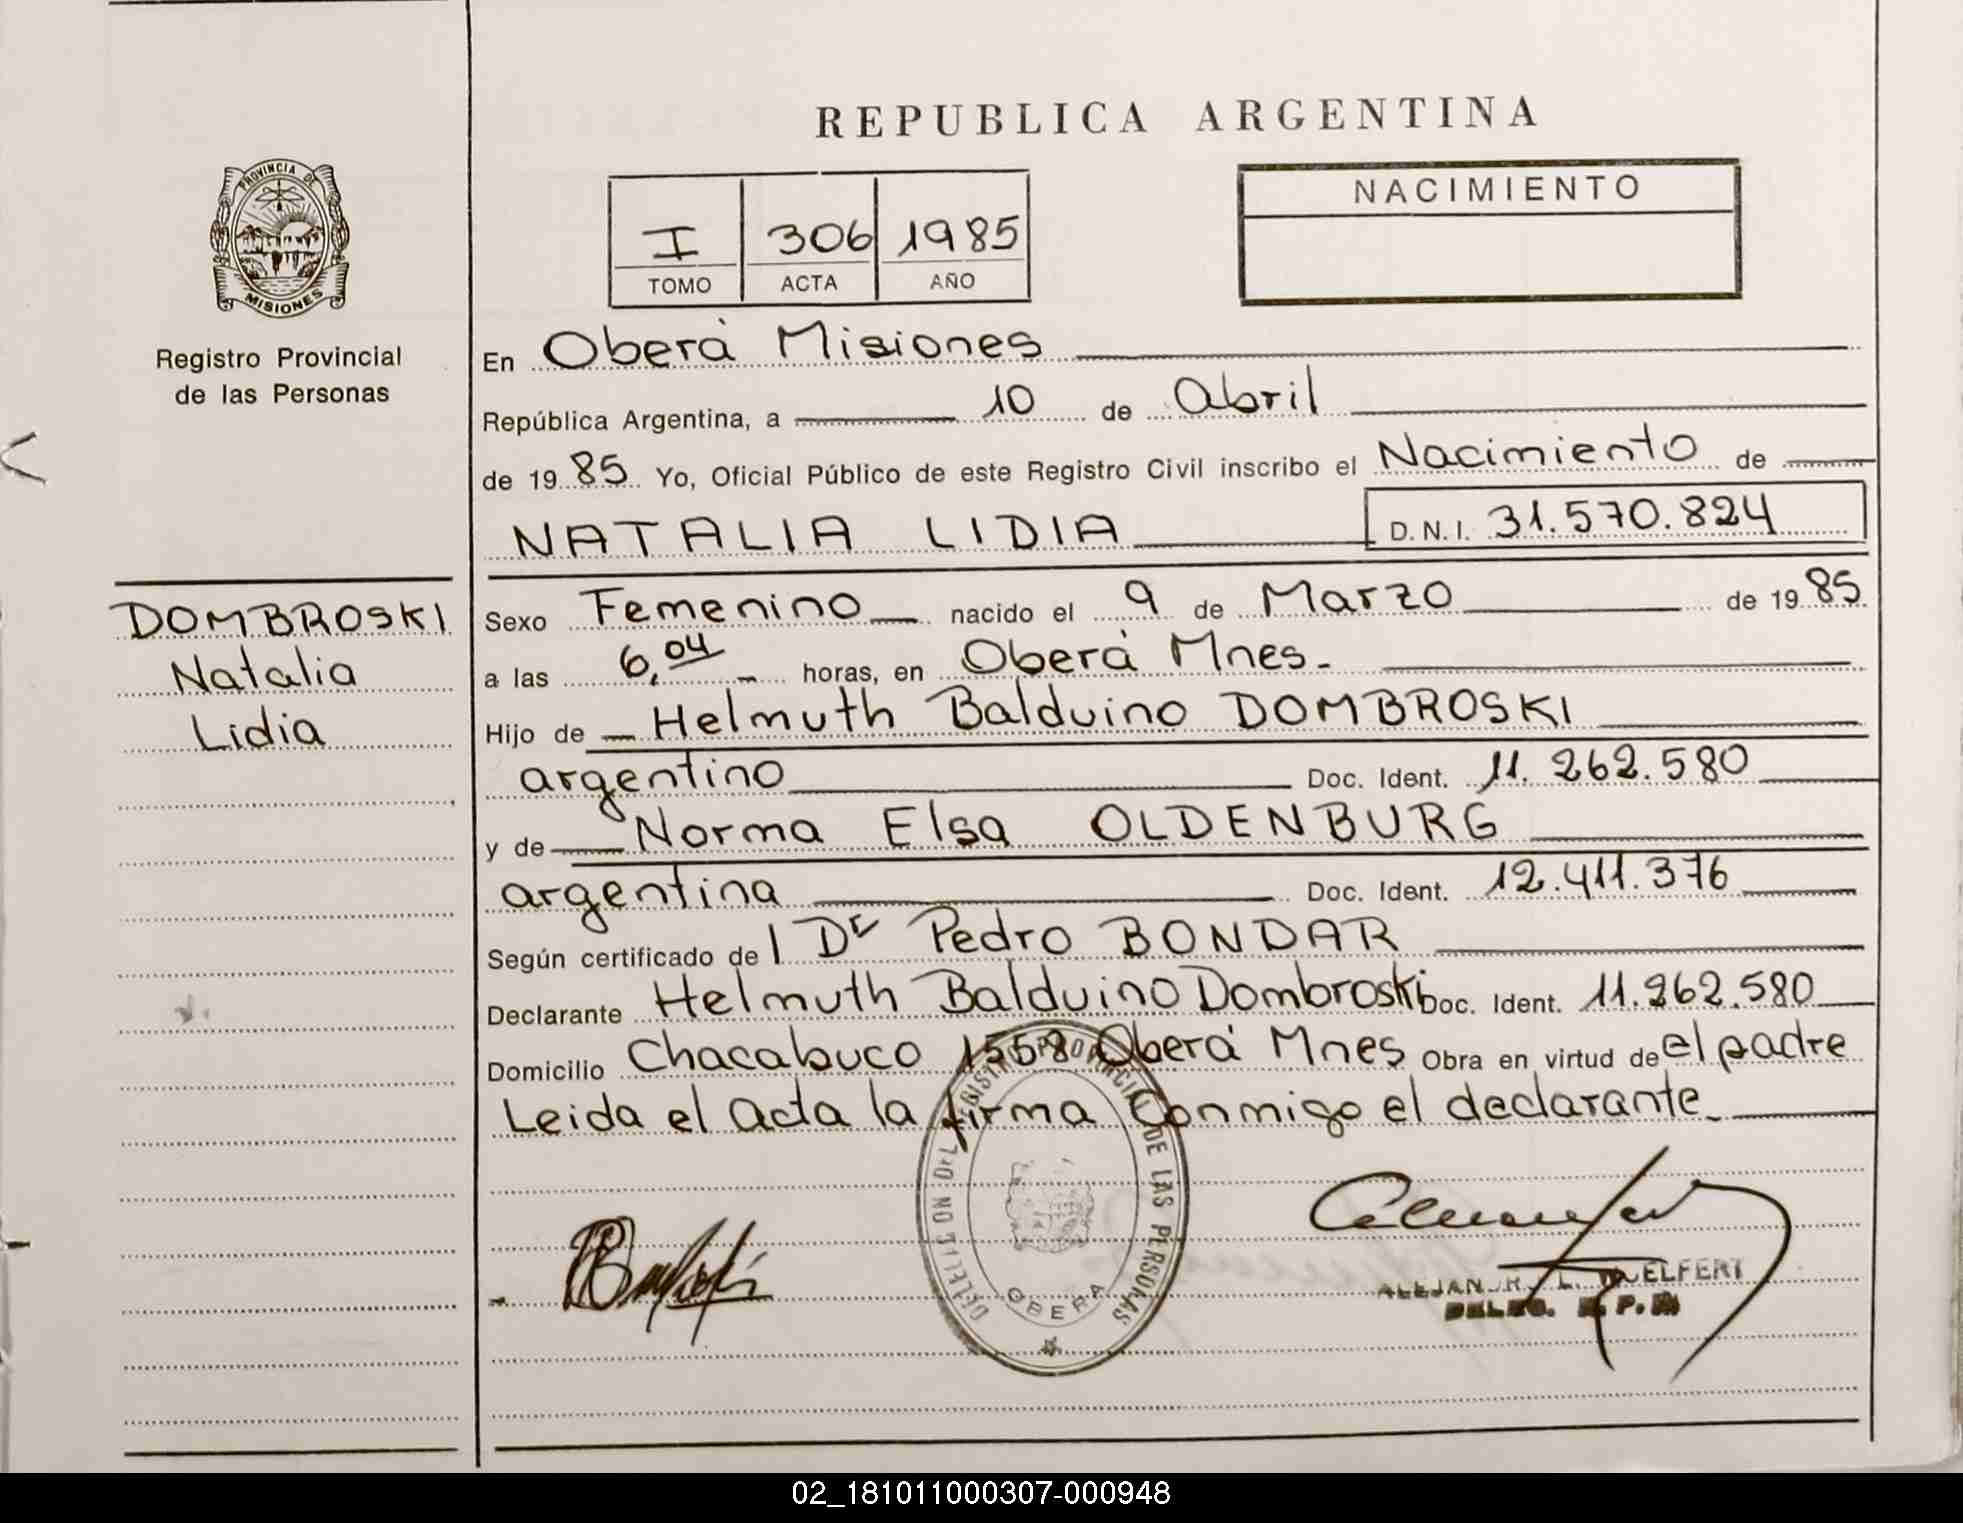 REPUBLICA ARGENTINA
PROVINCIA DE
MISIONES
Registro Provincial
de las Personas
I 306 1985
TOMO ACTA AÑO
NACIMIENTO
En Oberá Misiones
República Argentina, a 10 de Abril
de 1985 Yo, Oficial Público de este Registro Civil inscribo el Nacimiento de
NATALIA LIDIA D.N.I. 31.570.824
DOMBROSKI
Natalia
Lidia
Sexo Femenino nacido el 9 de Marzo de 1985
a las 6,04 horas, en Oberá Mnes.
Hijo de Helmuth Balduino DOMBROSKI
argentino Doc. Ident. 11.262.580
y de Norma Elsa OLDENBURG
argentina Doc. Ident. 12.411.376
Según certificado de l Dr Pedro BONDAR
Declarante Helmuth Balduino Dombroski Doc. Ident. 11.262.580
Domicilio Chacabuco 1558 Oberá Mnes Obra en virtud de el padre
Leida el Acta la firma Conmigo el declarante
DE LAS PERSONAS
OBERA
02_181011000307-000948